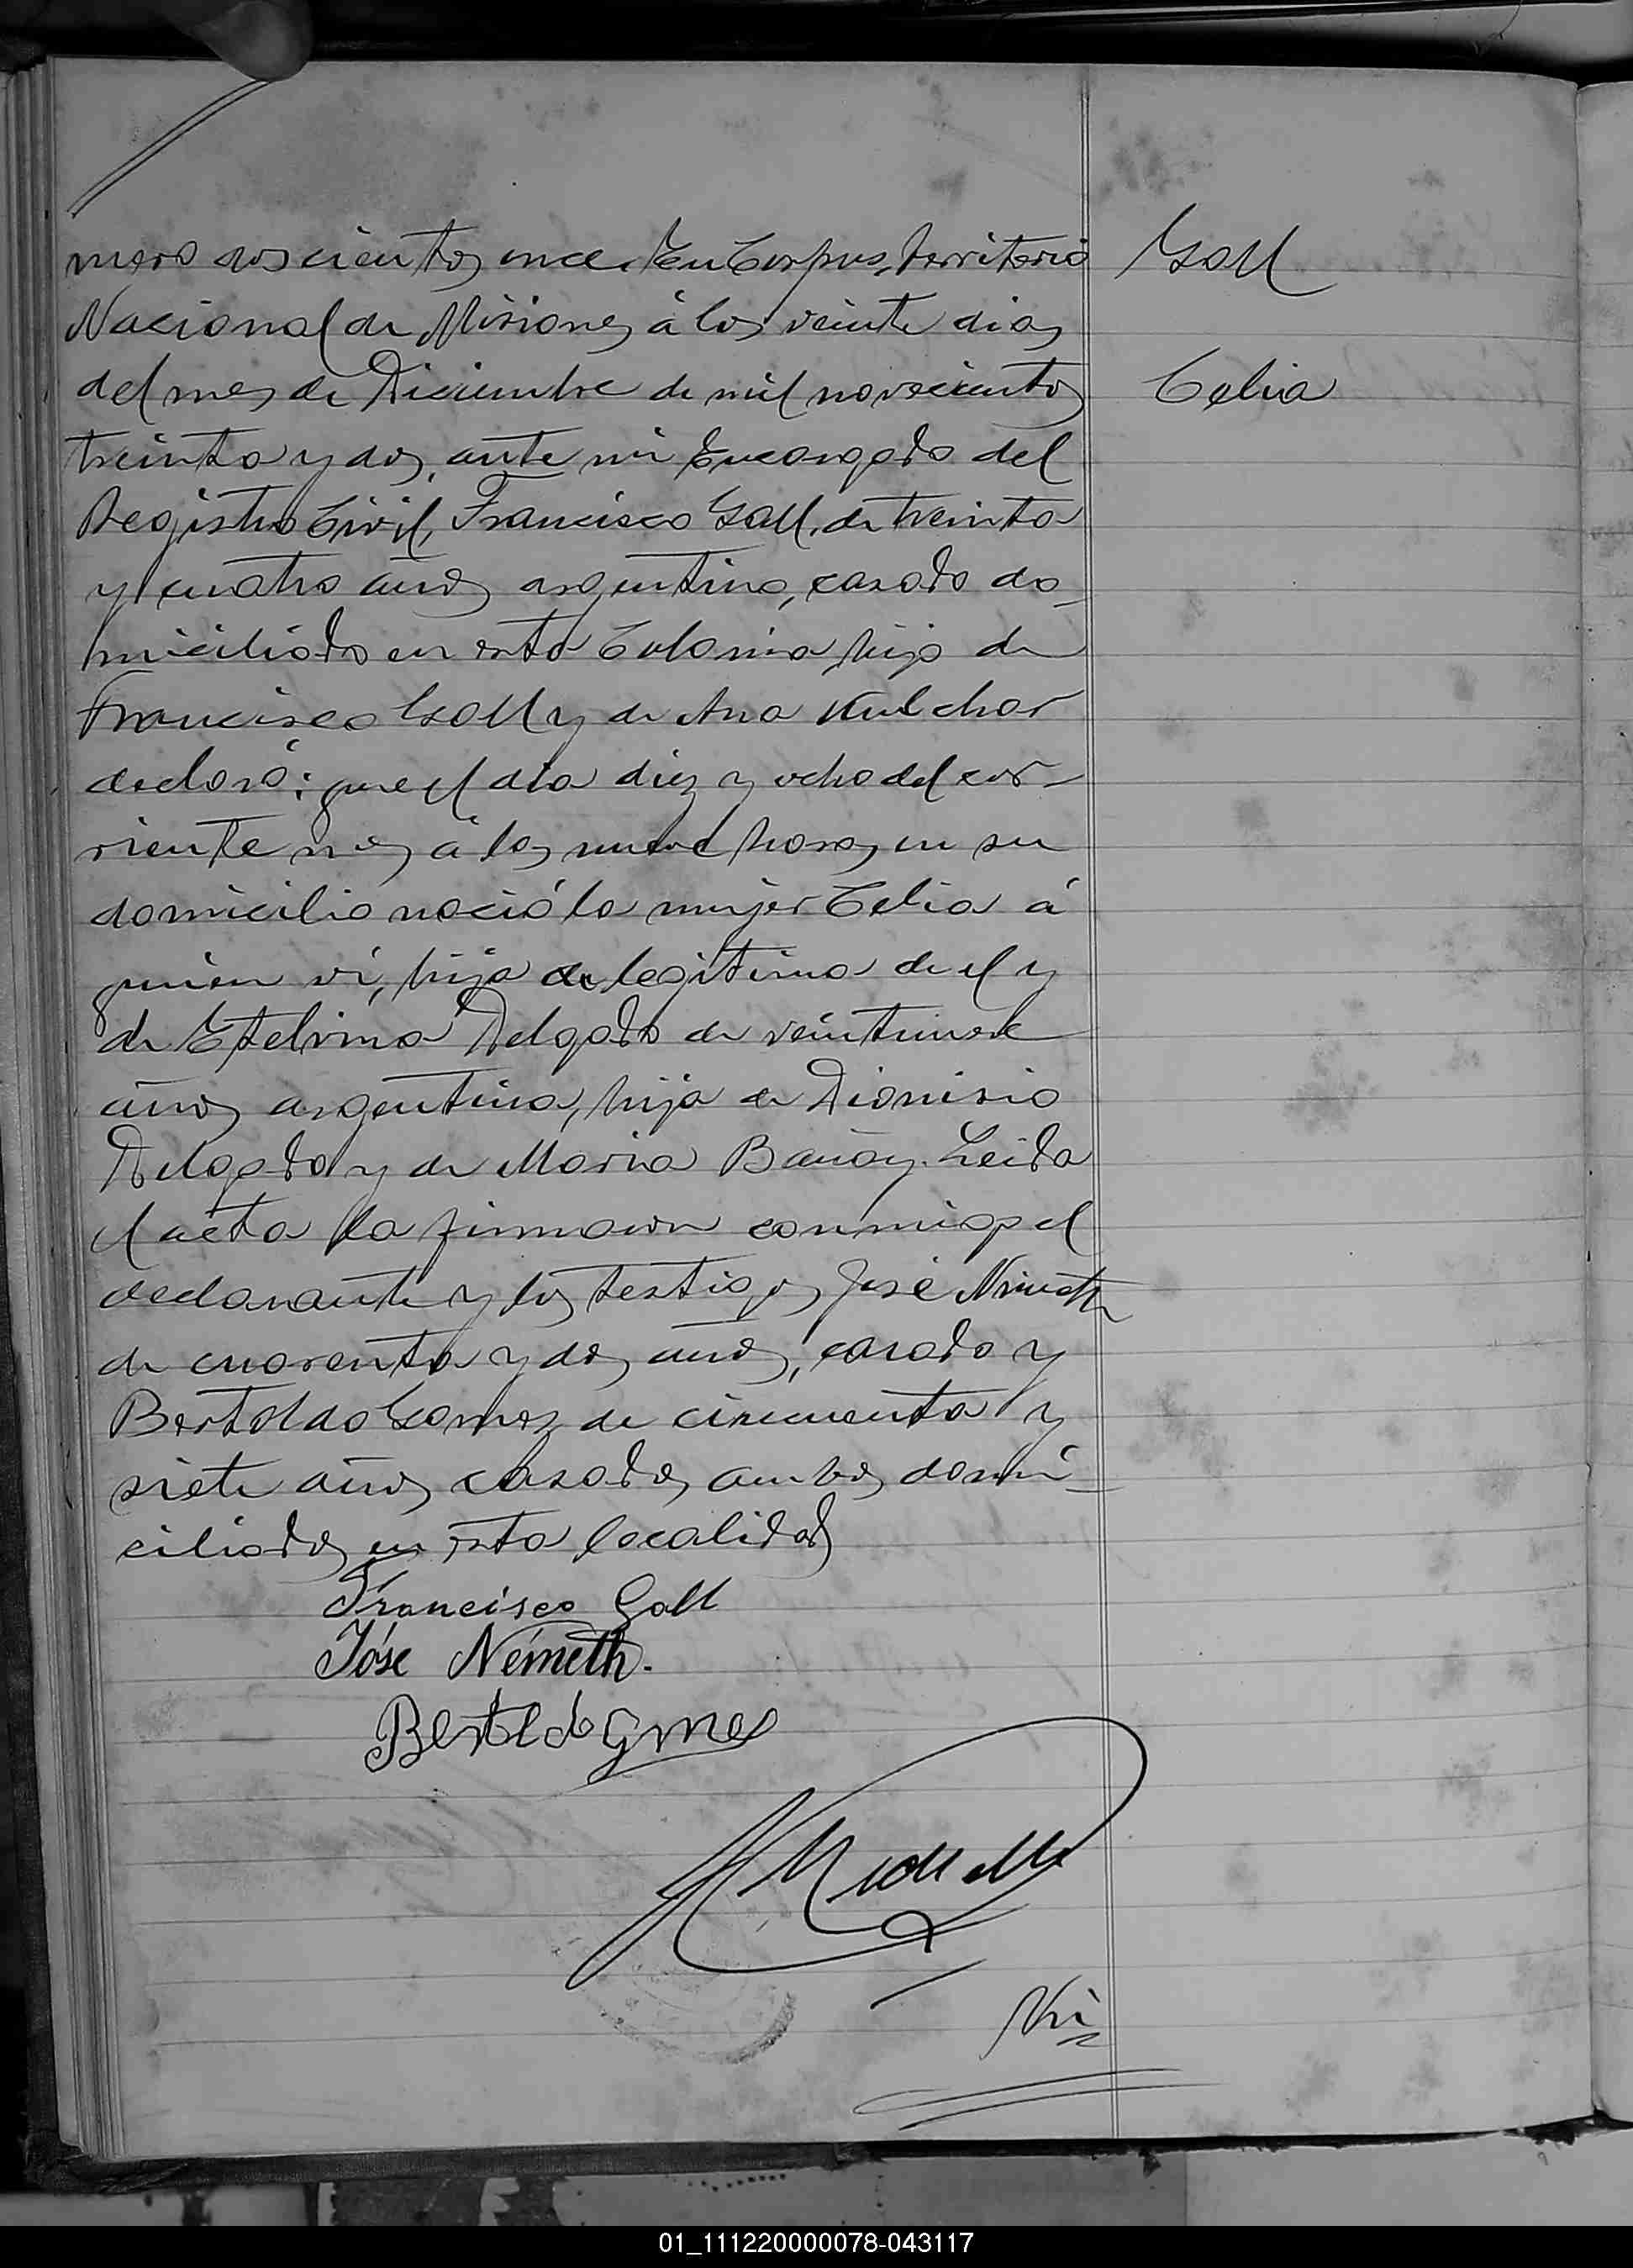 mero doscientos once. En Corpus, Territorio
Nacional de Misiones á los veinte dias
del mes de Diciembre de mil novecientos
treinta y dos, ante mi Encargado del
Registro Civil, Francisco Gall, de treinta
y cuatro años argentino, casado do-
miciliado en esta Colonia hijo de
Francisco Gall y de Ana
declaró: que el dia diez y ocho del cor-
riente mes á las nueve horas en su
domicilio nació la mujer Celia á
quien vi, hija de legitima de el y
de Etelvina Delgado de veintinueve
años argentina, hija de Dionisio
Delgado y de Maria Leida
el acta la firmaron conmigo el
declarante y los testigos José Németh
de cuarenta y dos años, casado y
Bertoldo Gomez de cincuenta y
siete años casado, ambos domi-
ciliados en esta localidad
Francisco Gall
Jóse Németh.
Bertoldo Gomes
Nú=
Gall
Celia
01_111220000078-043117